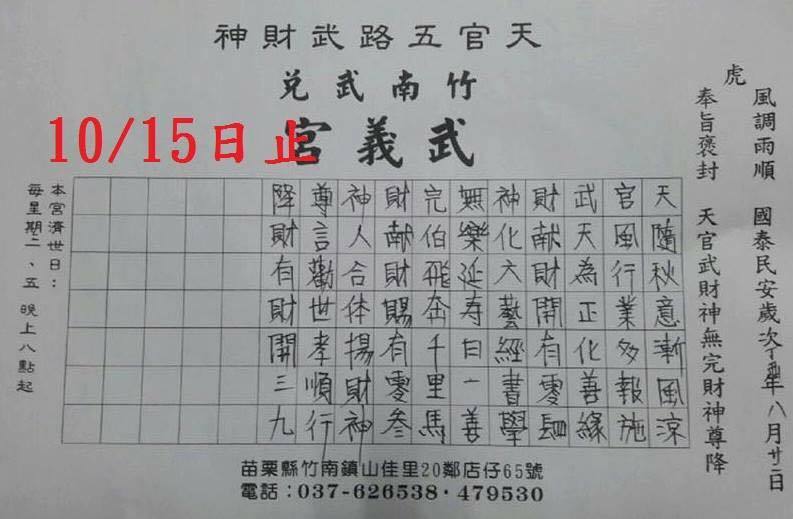 天官五路武財神
竹南武兌
武義宮
10/15日止
虎
風調雨順 國泰民安歲次丁酉年八月廿二日
奉旨褒封 天官武財神無完財神尊降
天隨秋意漸風涼
官風行業多報施
武天為正化善緣
財献財開有零肆
神化六藝經書學
無樂延寿日一善
完伯飛奔千里馬
財献財賜有零叁
神人合体揚財神
尊言勸世孝順行
降財有財開三九
本宮濟世日：
每星期二、五 晚上八點起
苗栗縣竹南鎮山佳里20鄰店仔65號
電話：037-626538·479530